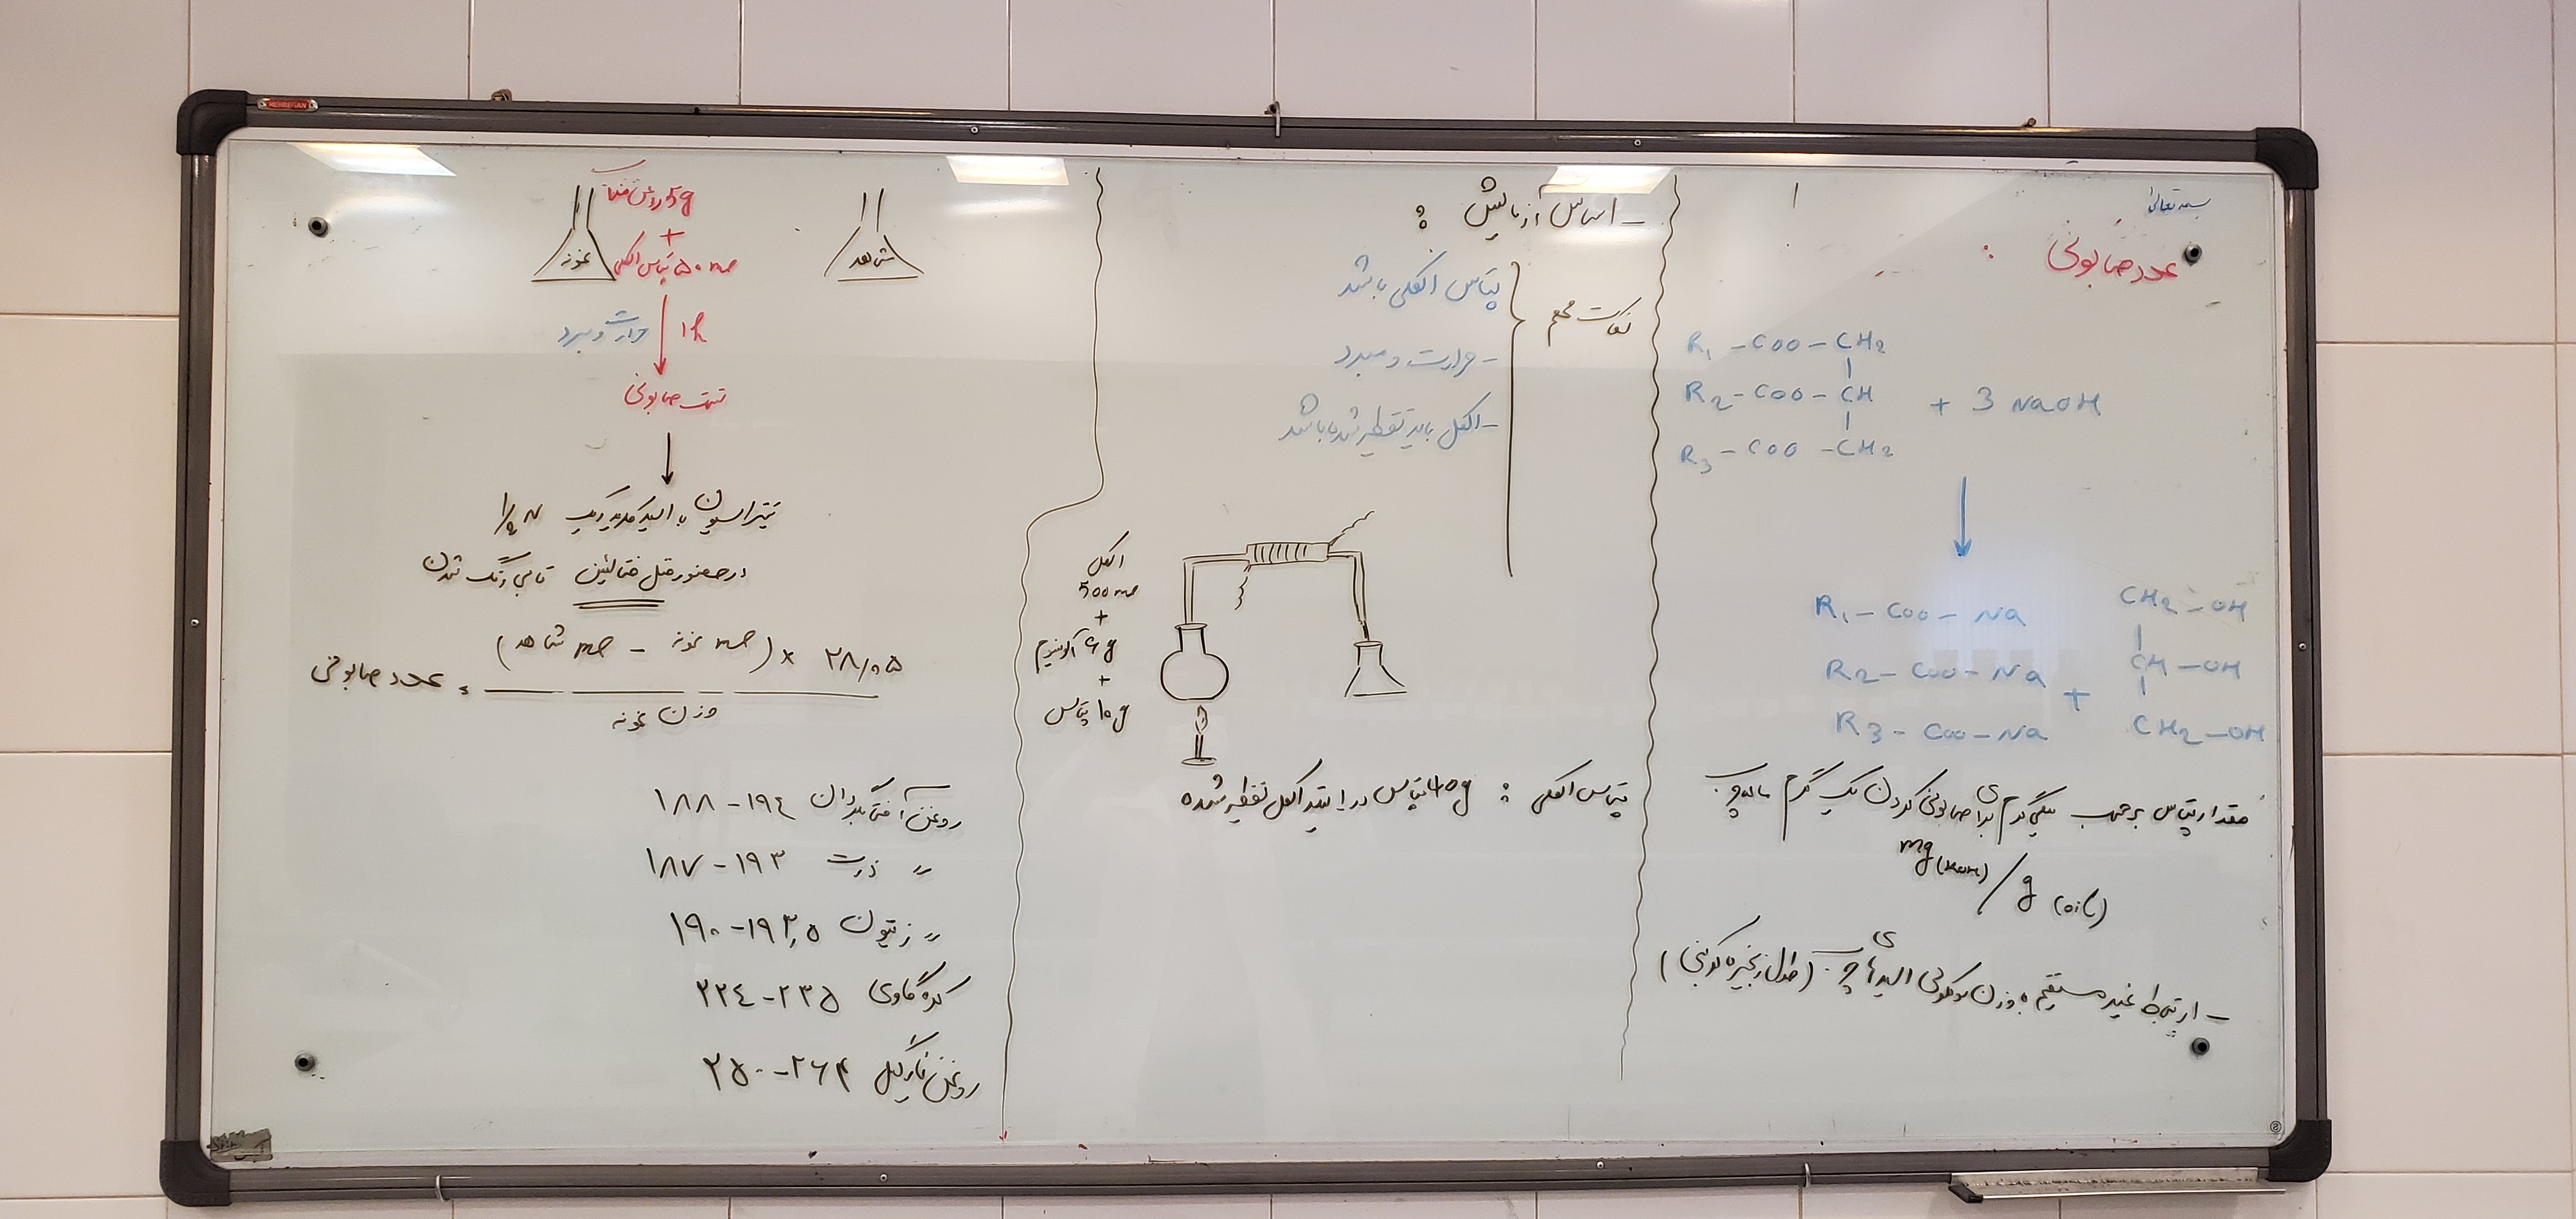 بسمه تعالی
عدد صابونی :
R1 - COO - CH2
R2 - COO - CH + 3 NaOH
R3 - COO - CH2
R1 - COO - Na CH2 - OH
R2 - COO - Na + CH - OH
R3 - COO - Na CH2 - OH
مقدار پتاس برحسب میلی گرم برای صابونی کردن یک گرم ماده چرب
mg (KOH) / g (oil)
- ارتباط غیر مستقیم با وزن مولکولی اسیدهای چرب (طول زنجیره کربنی)
- اساس آزمایش :
نکات مهم
پتاس الکلی باشد
- حرارت و مبرد
- الکل باید تقطیر شده باشد
الکل
500 ml
+
6 g آلومینیوم
+
10 g پتاس
پتاس الکلی : 40 g پتاس در 1 لیتر الکل تقطیر شده
شاهد
نمونه
5g روغن خشک
+
۵۰ ml پتاس الکلی
1h حرارت و مبرد
تست صابونی
تیتراسیون با اسید کلریدریک ۱/۲ N
در حضور فنل فتالئین تا بی رنگ شدن
عدد صابونی = (ml شاهد - ml نمونه) × ۲۸/۰۵
وزن نمونه
روغن آفتابگردان ۱۸۸-۱۹٤
〃 ذرت ۱۸۷-۱۹۳
〃 زیتون ۱۹۰-۱۹۳,۵
کره گاوی ۲۲٤-۲۳۵
روغن نارگیل ۲۵۰-۲۶۴